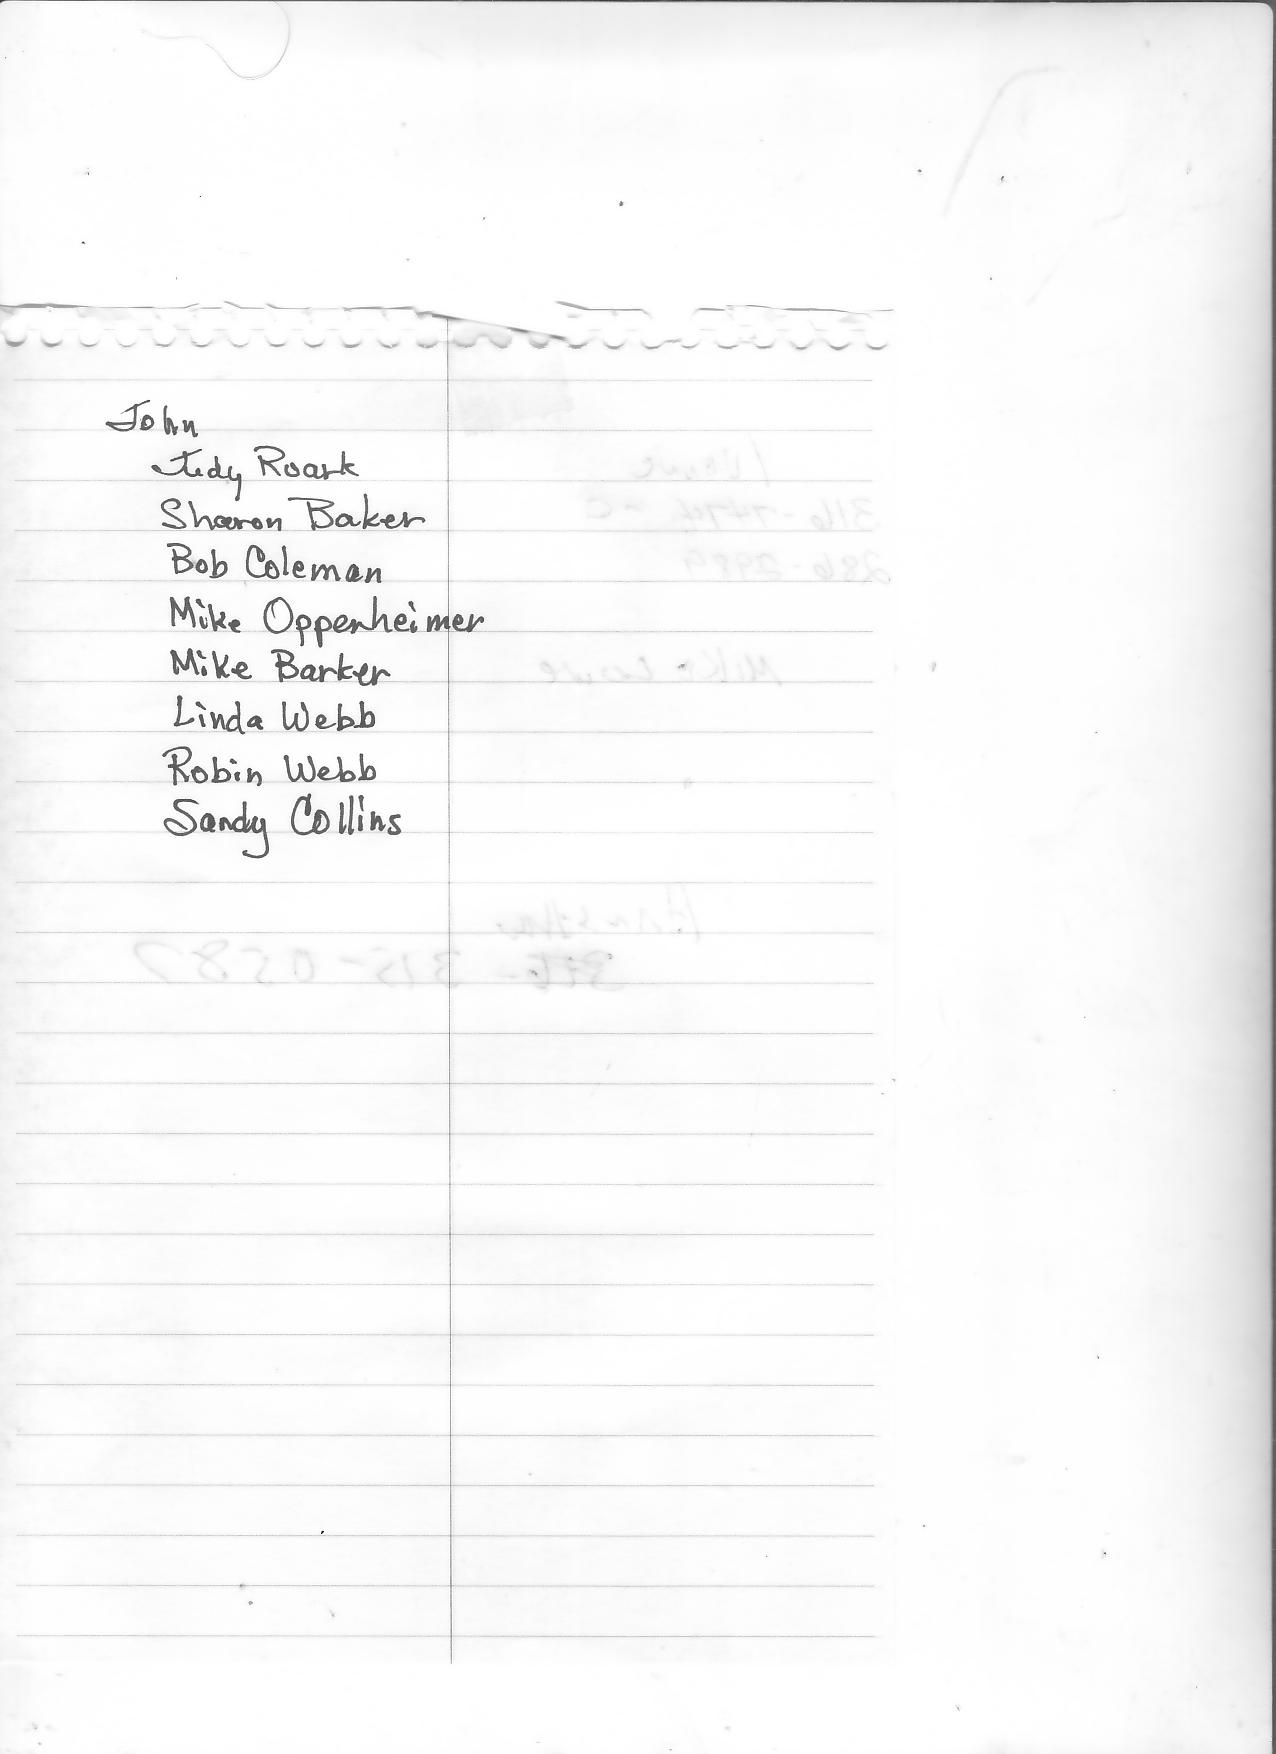 John
Judy Roark
Sharon Baker
Bob Coleman
Mike Oppenheimer
Mike Barker
Linda Webb
Robin Webb
Sandy Collins